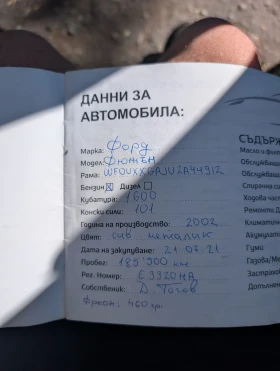 ДАННИ ЗА
АВТОМОБИЛА:
Марка: Форд
Модел: Фюжън
Рама: WFOUXXGAJU2A44912
Бензин ☒ Дизел ☐
Кубатура: 1600
Конски сили: 101
Година на производство: 2002
Цвят: сив металик
Дата на закупуване: 21.07.21
Пробег: 185'500 км
Рег. Номер: E3320HA
Собственик: Д. Тасов
фреон: 460 гр.
СЪДЪРЖ
Масло и филт
Обслужва
Обслужва
Спирачна си
Ходова част
Ремонти Д
Климатич
Акумулат
Гуми
Газова/Ме
Застрахов
Допълнит